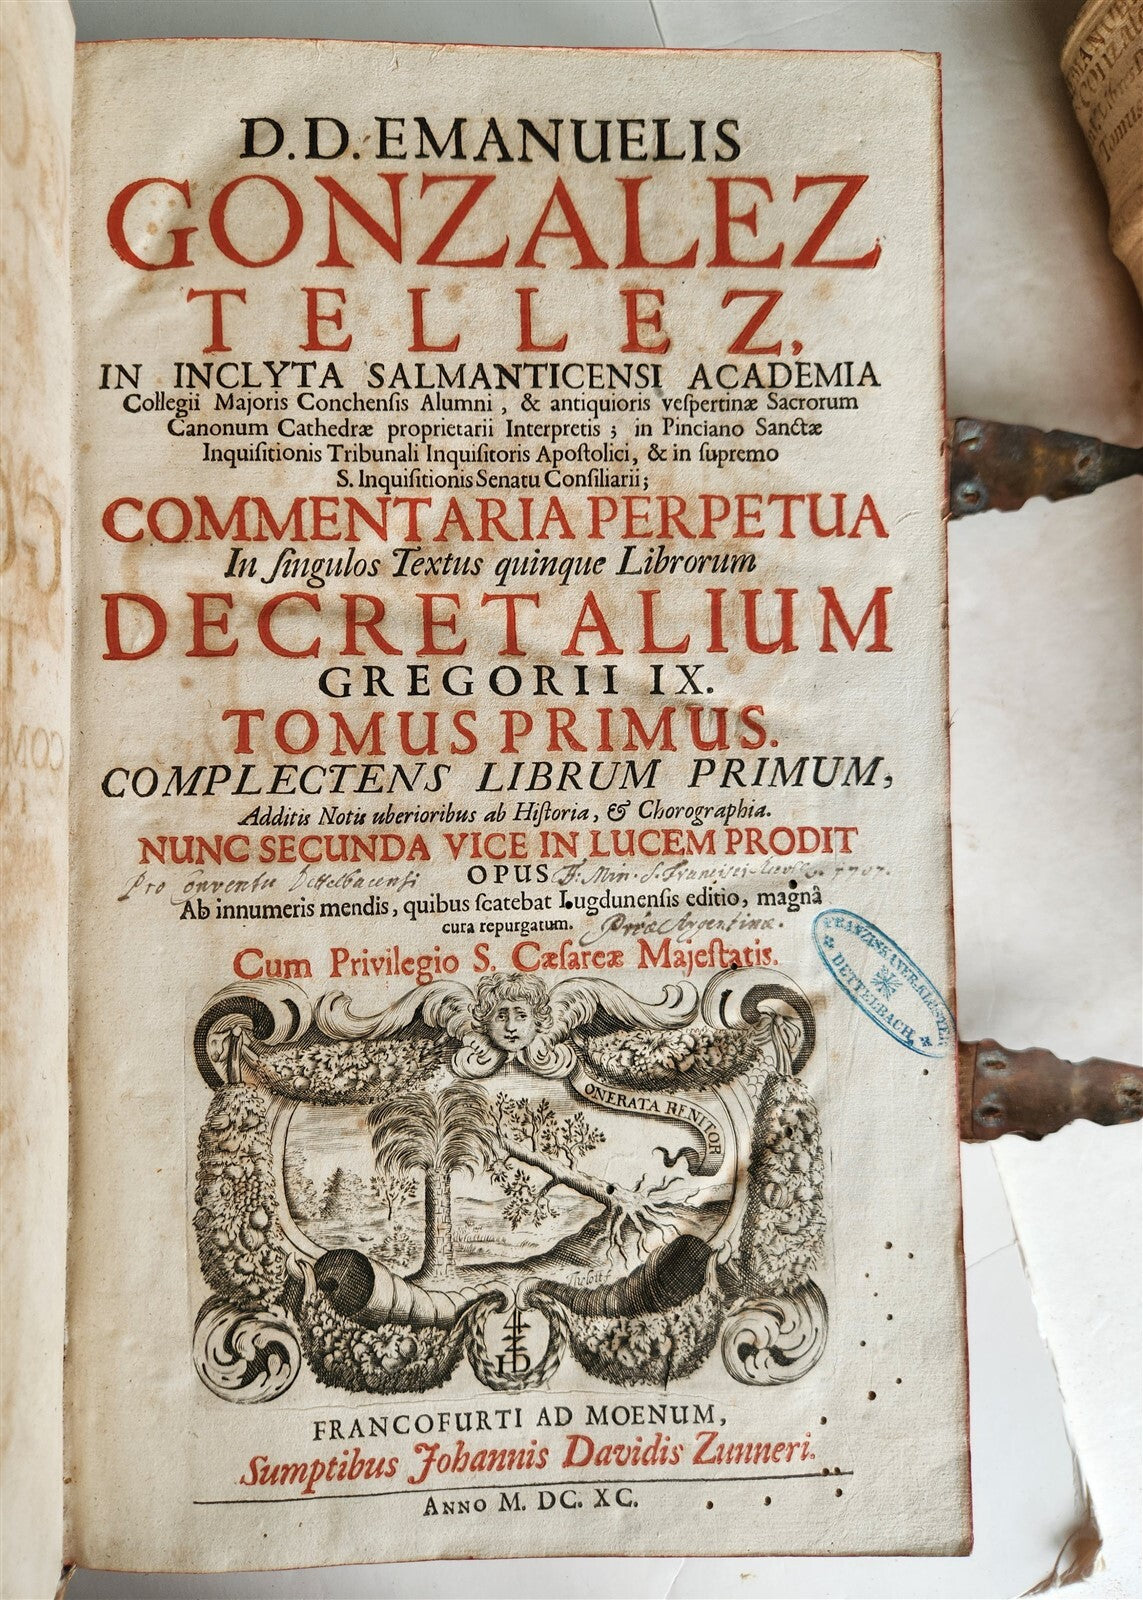 D.D. EMANUELIS
GONZALEZ
TELLEZ,
IN INCLYTA SALMANTICENSI ACADEMIA
Collegii Majoris Conchenſis Alumni, & antiquioris veſpertinæ Sacrorum
Canonum Cathedræ proprietarii Interpretis; in Pinciano Sanctæ
Inquiſitionis Tribunali Inquiſitoris Apoſtolici, & in ſupremo
S. Inquiſitionis Senatu Conſiliarii;
COMMENTARIA PERPETUA
In ſingulos Textus quinque Librorum
DECRETALIUM
GREGORII IX.
TOMUS PRIMUS.
COMPLECTENS LIBRUM PRIMUM,
Additis Notis uberioribus ab Hiſtoria, & Chorographia.
NUNC SECUNDA VICE IN LUCEM PRODIT
OPUS
Pro Conventu Dettelbacensi F. Min. S. Francisci 1707.
Ab innumeris mendis, quibus ſcatebat Lugdunenſis editio, magnâ
cura repurgatum.
Prov. Argentinæ.
Cum Privilegio S. Cæſareæ Majeſtatis.
FRANZISKANER-KLOSTER
DETTELBACH
ONERATA RENITOR
Thelott f
4
ID
FRANCOFURTI AD MOENUM,
Sumptibus Johannis Davidis Zunneri.
ANNO M. DC. XC.
Tomus